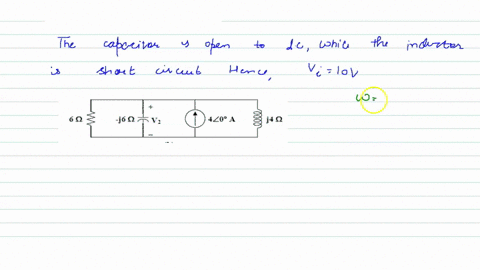 The capacitor is open to dc, while the inductor
is short circuit Hence, Vi = 10V
ω=
6 Ω -j6 Ω + V₂ − 4∠0° A j4 Ω